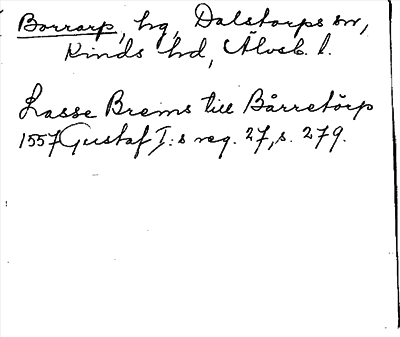 Borrarp, hg, Dalstorps sn,
Kinds hd, Älvsb. l.
Lasse Brems till Bårretörp
1557 Gustaf I:s reg. 27, s. 279.